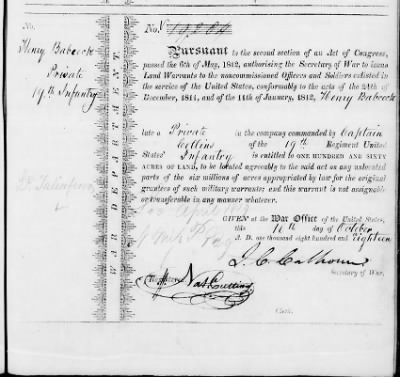 No.
Henry Babcock
Private
19th Infantry
WAR DEPARTMENT.
No.
Pursuant to the second section of an Act of Congress,
passed the 6th of May, 1812, authorising the Secretary of War to issue
Land Warrants to the noncommissioned Officers and Soldiers enlisted in
the service of the United States, conformably to the acts of the 24th of
December, 1811, and of the 11th of January, 1812, Henry Babcock
late a Private in the company commanded by Captain
Collins of the 19th Regiment United
States' Infantry is entitled to ONE HUNDRED AND SIXTY
ACRES OF LAND, to be located agreeably to the said act on any unlocated
parts of the six millions of acres appropriated by law for the original
grantees of such military warrants; and this warrant is not assignable
or transferable in any manner whatever.
GIVEN at the War Office of the United States,
this 10th day of October
A. D. one thousand eight hundred and Eighteen
J. C. Calhoun
Secretary of War.
Nat Cutting
Clerk.